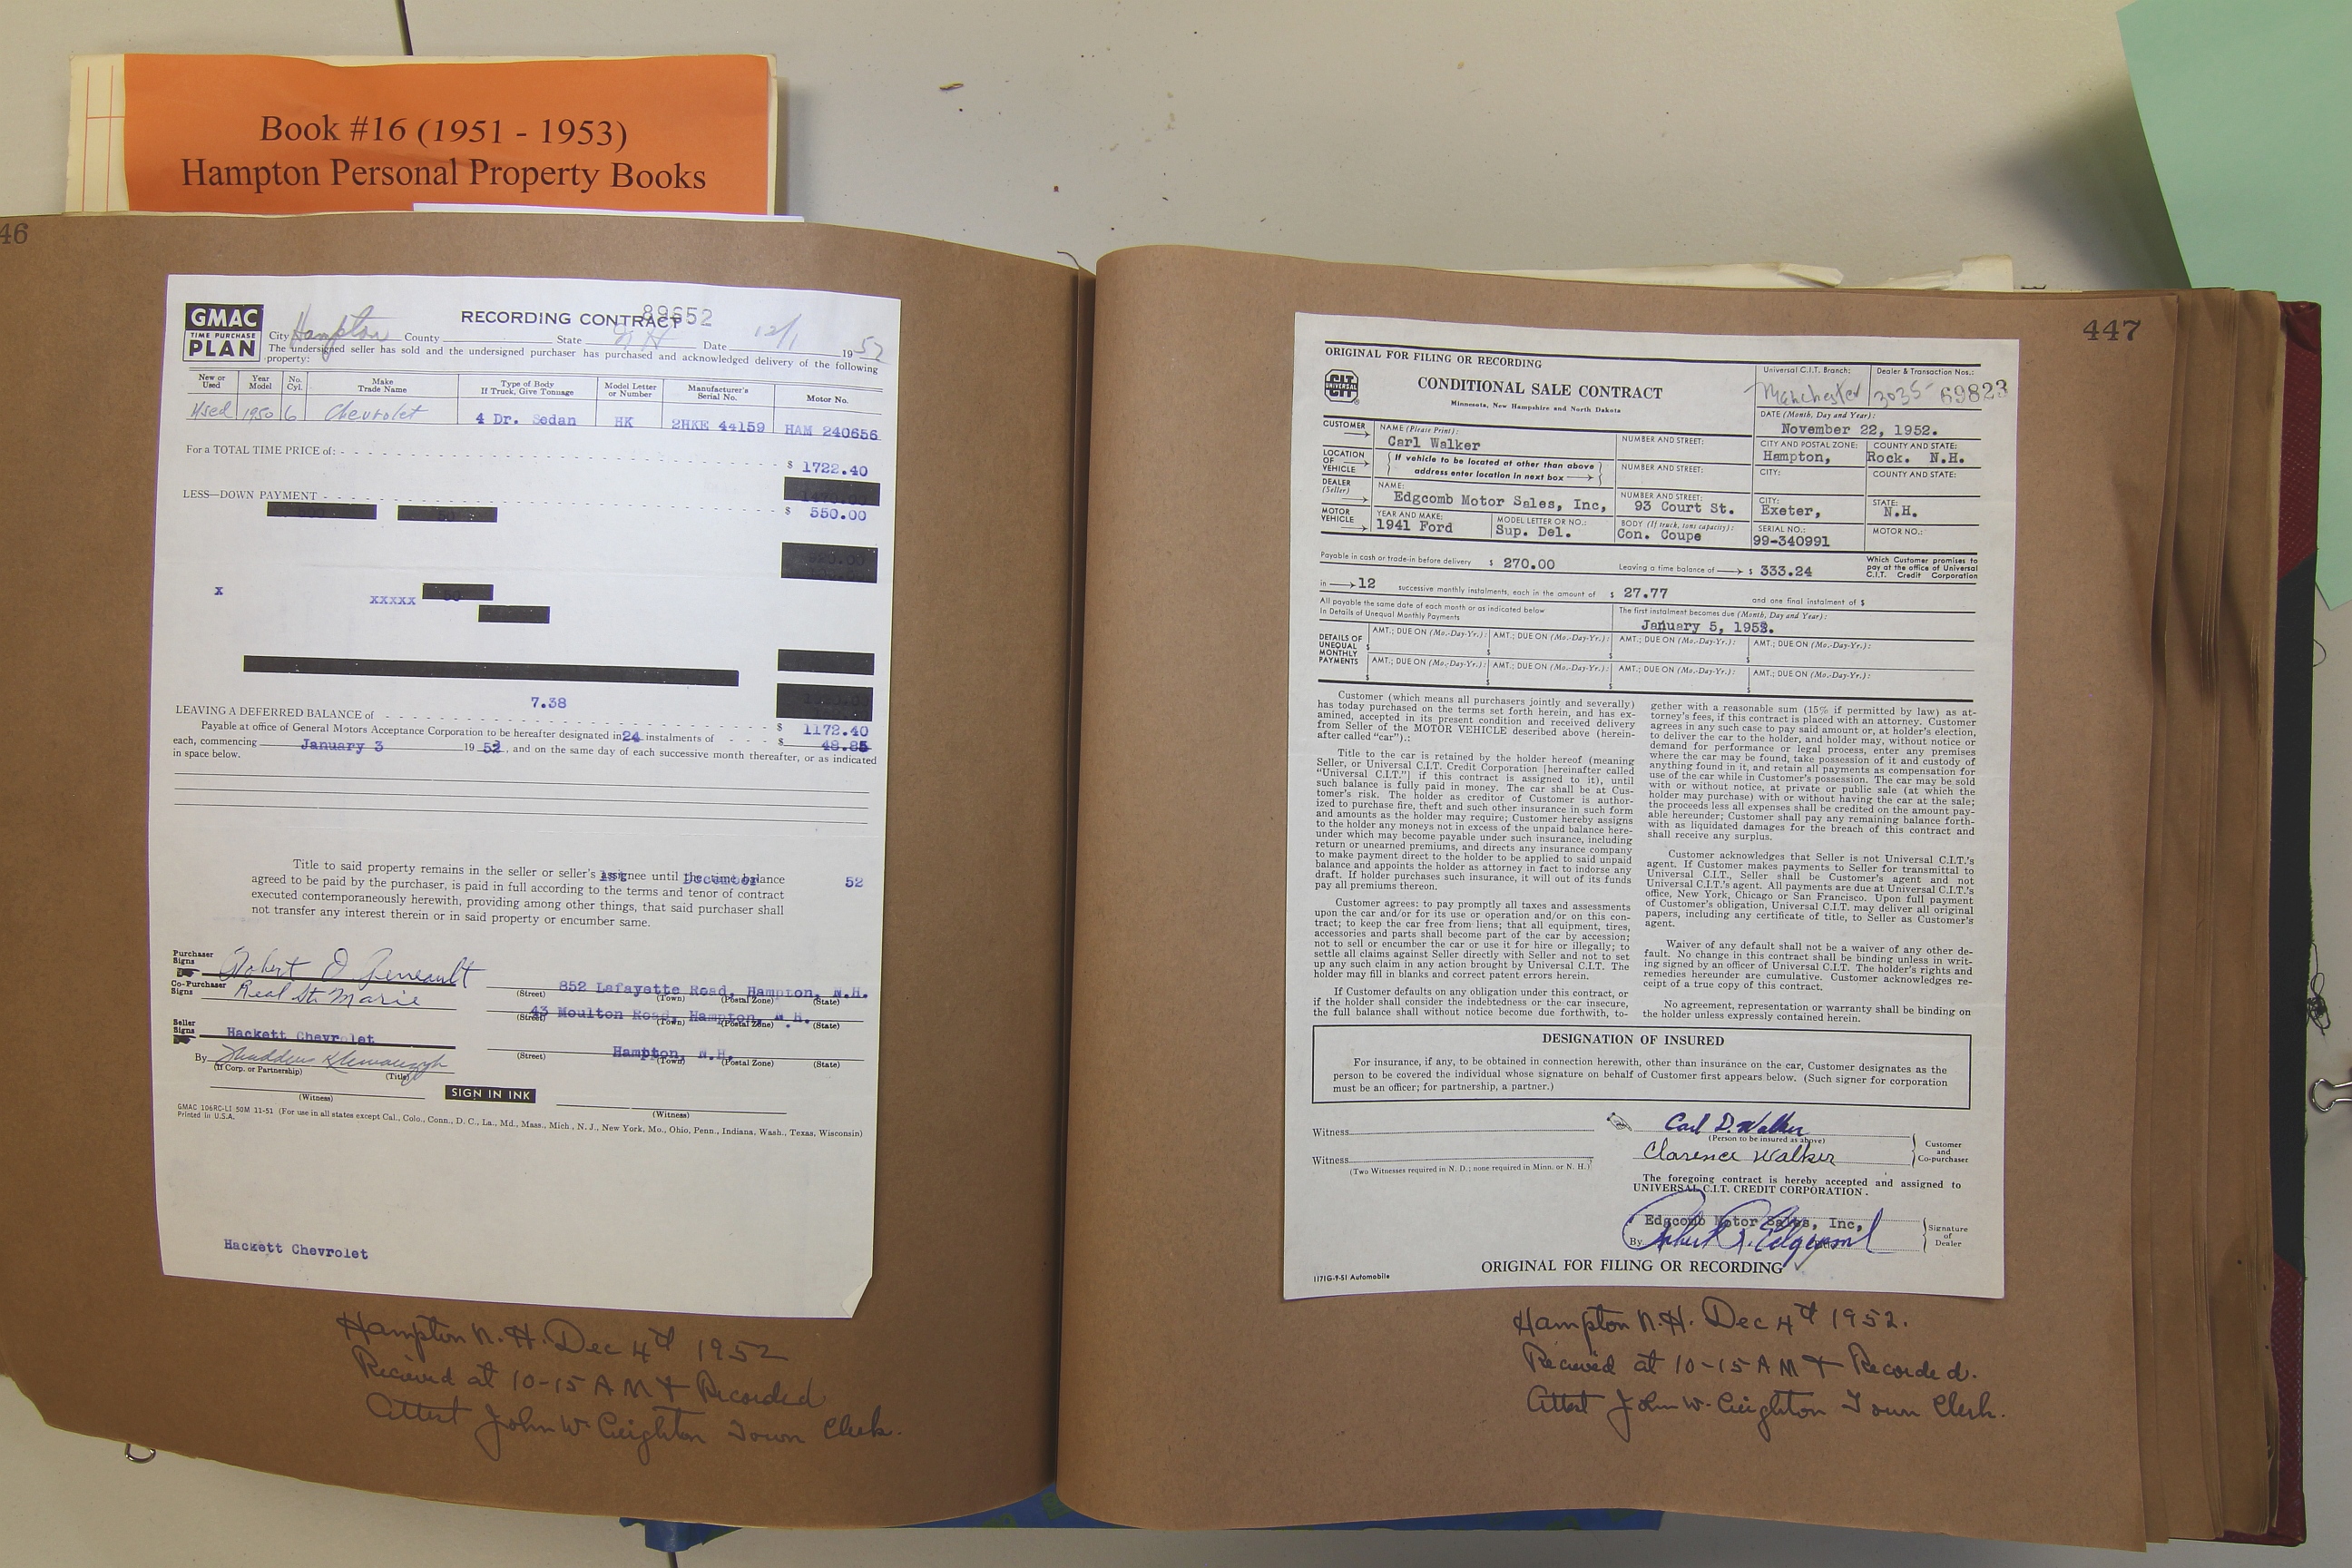 Book #16 (1951 - 1953)
Hampton Personal Property Books
46
GMAC
TIME PURCHASE
PLAN
RECORDING CONTRACT
89652
City Hampton County State N H Date 12/1 19 52
The undersigned seller has sold and the undersigned purchaser has purchased and acknowledged delivery of the following
property:
New or Used Year Model No. Cyl. Make Trade Name Type of Body If Truck, Give Tonnage Model Letter or Number Manufacturer's Serial No. Motor No.
Used 1950 6 Chevrolet 4 Dr. Sedan HK 2HKE 44159 HAM 240656
For a TOTAL TIME PRICE of: $ 1722.40
LESS—DOWN PAYMENT $ 550.00
x xxxxx
7.38
LEAVING A DEFERRED BALANCE of $ 1172.40
Payable at office of General Motors Acceptance Corporation to be hereafter designated in 24 instalments of $ 48.85
each, commencing January 3 19 , and on the same day of each successive month thereafter, or as indicated
in space below.
Title to said property remains in the seller or seller's assignee until the time balance
1st December 52
agreed to be paid by the purchaser, is paid in full according to the terms and tenor of contract
executed contemporaneously herewith, providing among other things, that said purchaser shall
not transfer any interest therein or in said property or encumber same.
Purchaser Signs Robert O
852 Lafayette Road, Hampton, N.H.
(Street) (Town) (Postal Zone) (State)
Co-Purchaser Signs Real Ste Marie
43 Moulton Road, Hampton, N.H.
(Street) (Town) (Postal Zone) (State)
Seller Signs Hackett Chevrolet
Hampton, N.H.
By Thaddeus
(Street) (Town) (Postal Zone) (State)
(If Corp. or Partnership) (Title)
SIGN IN INK
(Witness) (Witness)
GMAC 106RC-LI 50M 11-51 (For use in all states except Cal., Colo., Conn., D. C., La., Md., Mass., Mich., N. J., New York, Mo., Ohio, Penn., Indiana, Wash., Texas, Wisconsin)
Printed in U.S.A.
Hackett Chevrolet
Hampton N. H. Dec 4th 1952
Recieved at 10-15 AM + Recorded
Attest John W. Creighton Town Clerk.
447
ORIGINAL FOR FILING OR RECORDING
UNIVERSAL CIT
CONDITIONAL SALE CONTRACT
Minnesota, New Hampshire and North Dakota
Universal C.I.T. Branch: Dealer & Transaction Nos.:
Manchester 3035 69823
DATE (Month, Day and Year):
November 22, 1952.
CUSTOMER NAME (Please Print): NUMBER AND STREET: CITY AND POSTAL ZONE: COUNTY AND STATE:
Carl Walker Hampton, Rock. N.H.
LOCATION OF VEHICLE (If vehicle to be located at other than above address enter location in next box) NUMBER AND STREET: CITY: COUNTY AND STATE:
DEALER (Seller) NAME: NUMBER AND STREET: CITY: STATE:
Edgcomb Motor Sales, Inc, 93 Court St. Exeter, N.H.
MOTOR VEHICLE YEAR AND MAKE: MODEL LETTER OR NO.: BODY (If truck, tons capacity): SERIAL NO.: MOTOR NO.:
1941 Ford Sup. Del. Con. Coupe 99-340991
Payable in cash or trade-in before delivery $ 270.00 Leaving a time balance of $ 333.24 Which Customer promises to pay at the office of Universal C.I.T. Credit Corporation
in 12 successive monthly instalments, each in the amount of $ 27.77 and one final instalment of $
All payable the same date of each month or as indicated below In Details of Unequal Monthly Payments
The first instalment becomes due (Month, Day and Year):
January 5, 1953.
DETAILS OF UNEQUAL MONTHLY PAYMENTS
AMT.; DUE ON (Mo.-Day-Yr.): AMT.; DUE ON (Mo.-Day-Yr.): AMT.; DUE ON (Mo.-Day-Yr.): AMT.; DUE ON (Mo.-Day-Yr.):
$ $ $ $
AMT.; DUE ON (Mo.-Day-Yr.): AMT.; DUE ON (Mo.-Day-Yr.): AMT.; DUE ON (Mo.-Day-Yr.): AMT.; DUE ON (Mo.-Day-Yr.):
$ $ $ $
Customer (which means all purchasers jointly and severally)
has today purchased on the terms set forth herein, and has ex-
amined, accepted in its present condition and received delivery
from Seller of the MOTOR VEHICLE described above (herein-
after called "car").:
Title to the car is retained by the holder hereof (meaning
Seller, or Universal C.I.T. Credit Corporation [hereinafter called
"Universal C.I.T."] if this contract is assigned to it), until
such balance is fully paid in money. The car shall be at Cus-
tomer's risk. The holder as creditor of Customer is author-
ized to purchase fire, theft and such other insurance in such form
and amounts as the holder may require; Customer hereby assigns
to the holder any moneys not in excess of the unpaid balance here-
under which may become payable under such insurance, including
return or unearned premiums, and directs any insurance company
to make payment direct to the holder to be applied to said unpaid
balance and appoints the holder as attorney in fact to indorse any
draft. If holder purchases such insurance, it will out of its funds
pay all premiums thereon.
Customer agrees: to pay promptly all taxes and assessments
upon the car and/or for its use or operation and/or on this con-
tract; to keep the car free from liens; that all equipment, tires,
accessories and parts shall become part of the car by accession;
not to sell or encumber the car or use it for hire or illegally; to
settle all claims against Seller directly with Seller and not to set
up any such claim in any action brought by Universal C.I.T. The
holder may fill in blanks and correct patent errors herein.
If Customer defaults on any obligation under this contract, or
if the holder shall consider the indebtedness or the car insecure,
the full balance shall without notice become due forthwith, to-
gether with a reasonable sum (15% if permitted by law) as at-
torney's fees, if this contract is placed with an attorney. Customer
agrees in any such case to pay said amount or, at holder's election,
to deliver the car to the holder, and holder may, without notice or
demand for performance or legal process, enter any premises
where the car may be found, take possession of it and custody of
anything found in it, and retain all payments as compensation for
use of the car while in Customer's possession. The car may be sold
with or without notice, at private or public sale (at which the
holder may purchase) with or without having the car at the sale;
the proceeds less all expenses shall be credited on the amount pay-
able hereunder; Customer shall pay any remaining balance forth-
with as liquidated damages for the breach of this contract and
shall receive any surplus.
Customer acknowledges that Seller is not Universal C.I.T.'s
agent. If Customer makes payments to Seller for transmittal to
Universal C.I.T., Seller shall be Customer's agent and not
Universal C.I.T.'s agent. All payments are due at Universal C.I.T.'s
office, New York, Chicago or San Francisco. Upon full payment
of Customer's obligation, Universal C.I.T. may deliver all original
papers, including any certificate of title, to Seller as Customer's
agent.
Waiver of any default shall not be a waiver of any other de-
fault. No change in this contract shall be binding unless in writ-
ing signed by an officer of Universal C.I.T. The holder's rights and
remedies hereunder are cumulative. Customer acknowledges re-
ceipt of a true copy of this contract.
No agreement, representation or warranty shall be binding on
the holder unless expressly contained herein.
DESIGNATION OF INSURED
For insurance, if any, to be obtained in connection herewith, other than insurance on the car, Customer designates as the
person to be covered the individual whose signature on behalf of Customer first appears below. (Such signer for corporation
must be an officer; for partnership, a partner.)
Witness Carl D. Walker
(Person to be insured as above)
Witness Clarence Walker
Customer and Co-purchaser
(Two Witnesses required in N. D.; none required in Minn. or N. H.)
The foregoing contract is hereby accepted and assigned to
UNIVERSAL C.I.T. CREDIT CORPORATION.
Edgcomb Motor Sales, Inc,
By Robert Edgcomb
Signature of Dealer
ORIGINAL FOR FILING OR RECORDING
1171G-9-51 Automobile
Hampton N. H. Dec 4th 1952.
Recieved at 10-15 AM + Recorded.
Attest John W. Creighton Town Clerk.